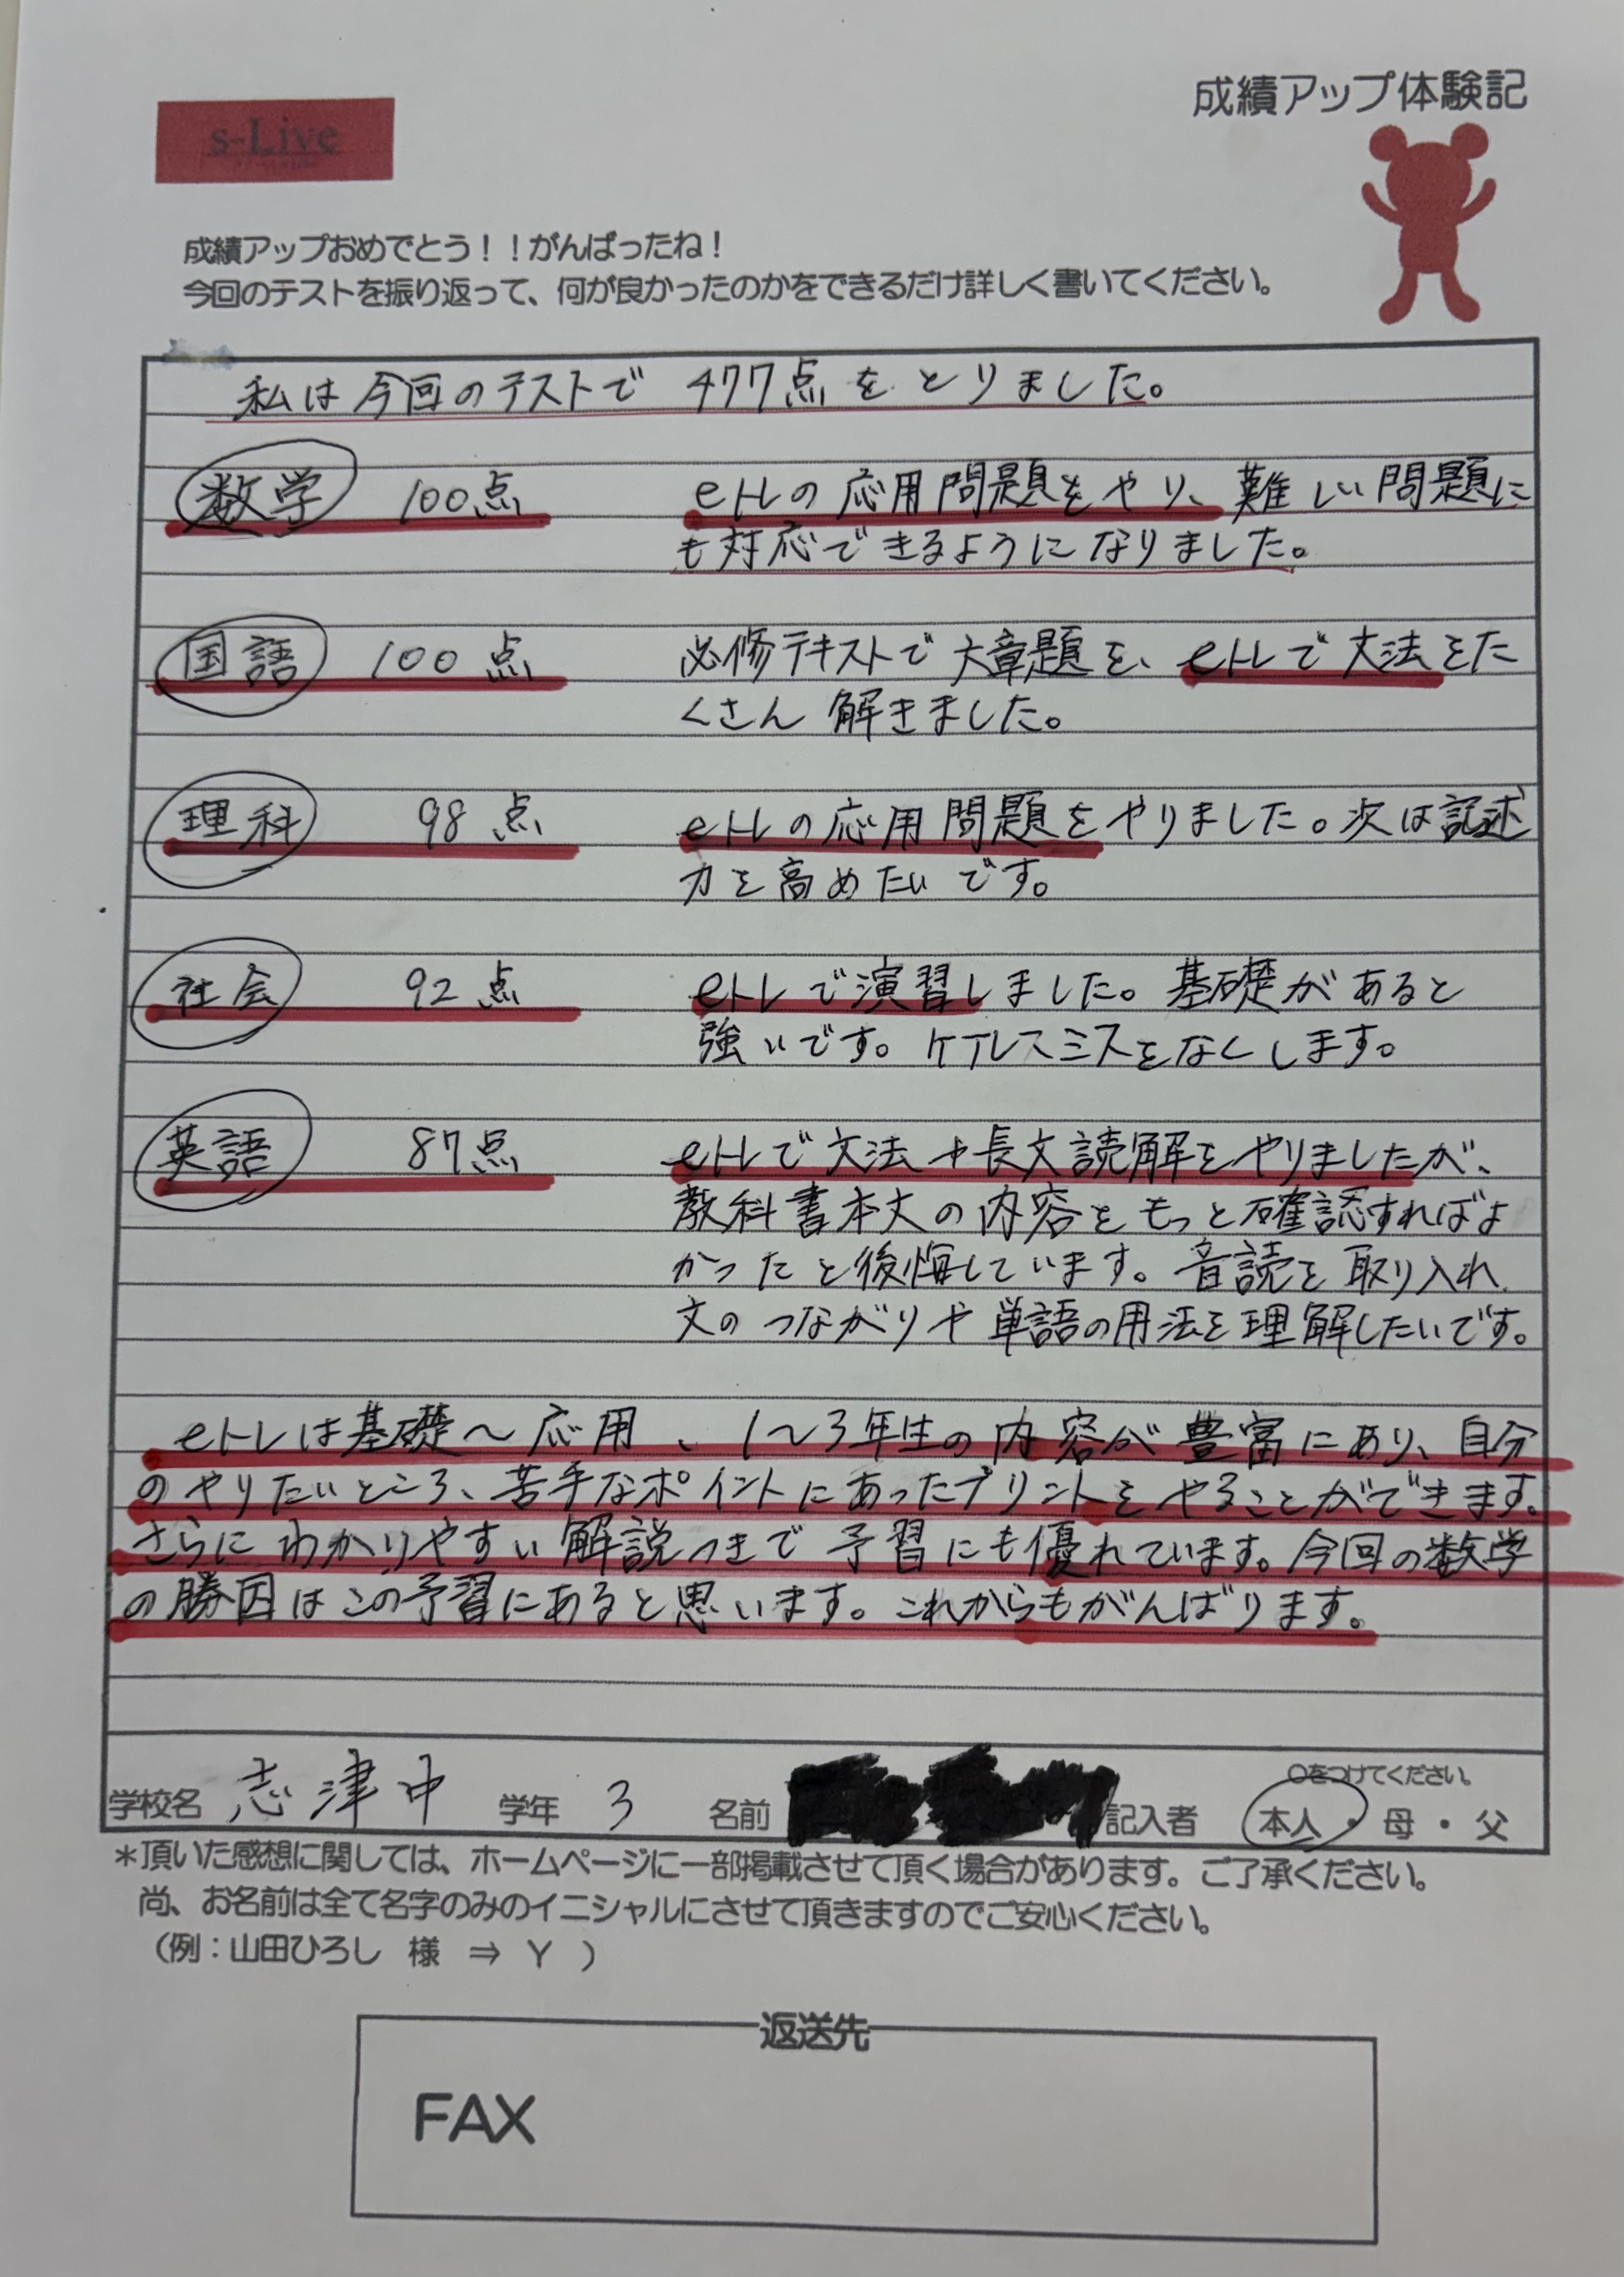 成績アップ体験記
s-Live
成績アップおめでとう！！がんばったね！
今回のテストを振り返って、何が良かったのかをできるだけ詳しく書いてください。
私は今回のテストで 477点をとりました。
数学 100点 eトレの応用問題をやり、難しい問題に
も対応できるようになりました。
国語 100点 必修テキストで大章題を、eトレで文法をた
くさん解きました。
理科 98点 eトレの応用問題をやりました。次は記述
力を高めたいです。
社会 92点 eトレで演習しました。基礎があると
強いです。ケアレスミスをなくします。
英語 87点 eトレで文法+長文読解をやりましたが、
教科書本文の内容をもっと確認すればよ
かったと後悔しています。音読を取り入れ
文のつながりや単語の用法を理解したいです。
eトレは基礎〜応用、1〜3年生の内容が豊富にあり、自分
のやりたいところ、苦手なポイントにあったプリントをやることができます。
さらにわかりやすい解説つきで予習にも優れています。今回の数学
の勝因はこの予習にあると思います。これからもがんばります。
○をつけてください。
学校名 志津中 学年 3 名前 記入者 本人・母・父
＊頂いた感想に関しては、ホームページに一部掲載させて頂く場合があります。ご了承ください。
尚、お名前は全て名字のみのイニシャルにさせて頂きますのでご安心ください。
（例：山田ひろし 様 ⇒ Y ）
返送先
FAX